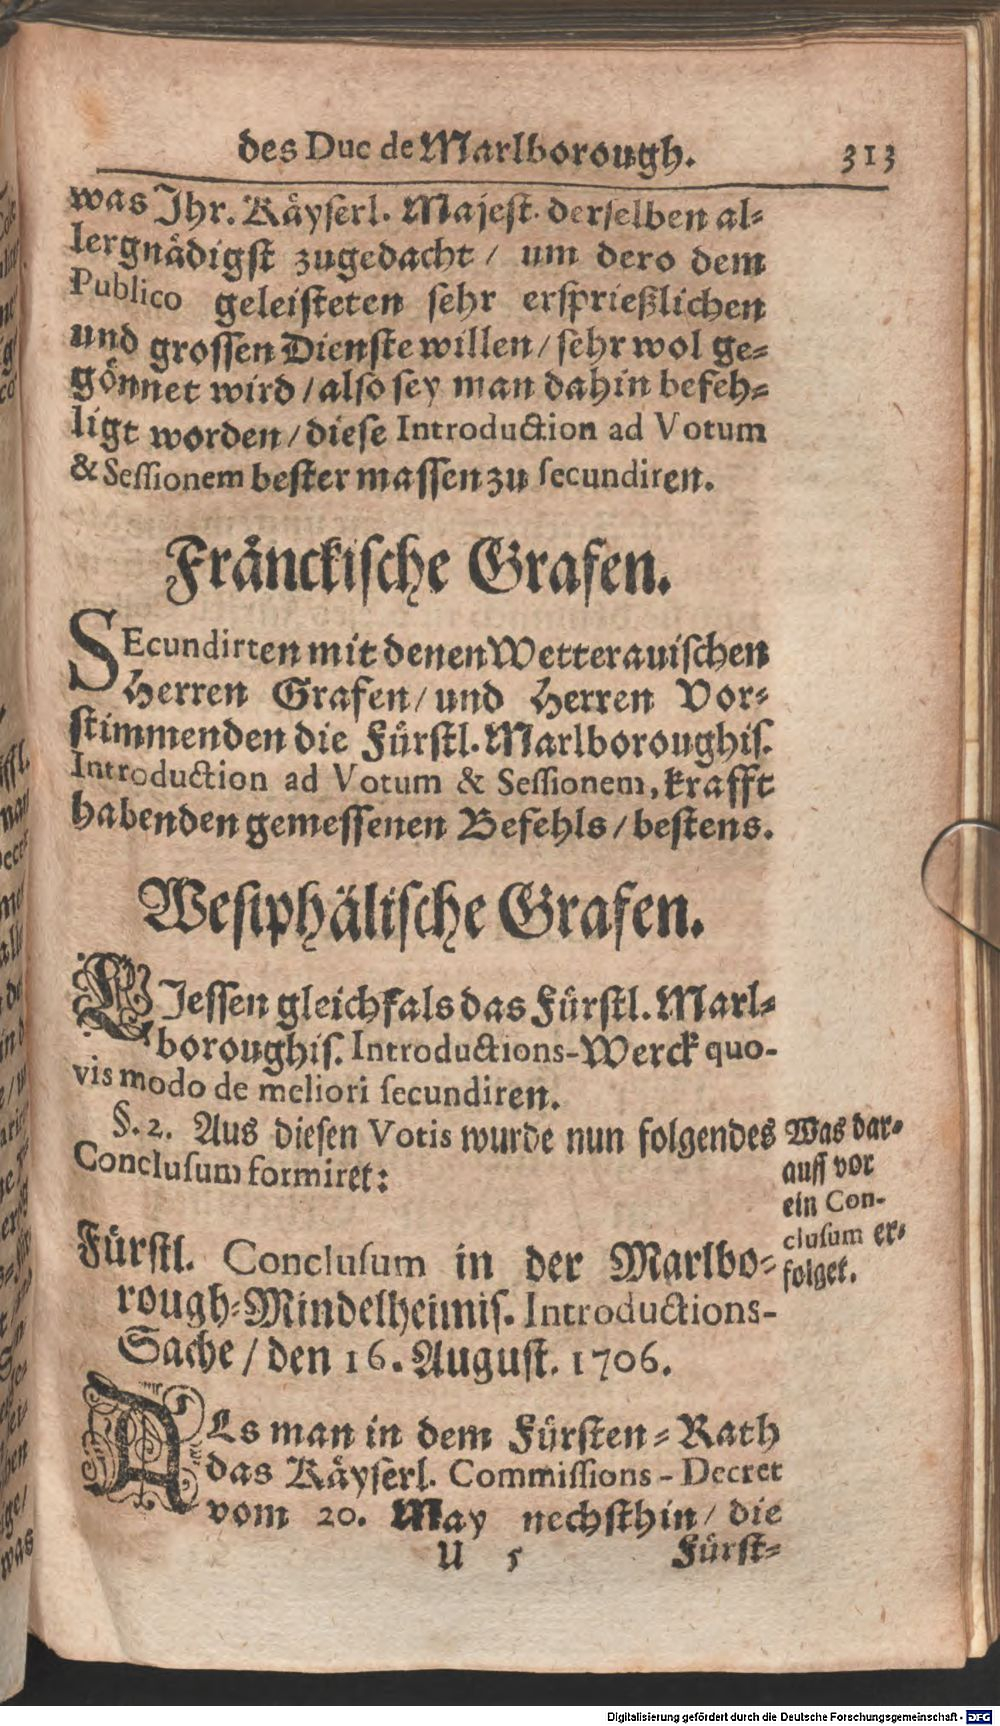 des Duc de Marlborough. 313
was Ihr. Käyserl. Majest. derselben al-
lergnädigst zugedacht / um dero dem
Publico geleisteten sehr ersprießlichen
und grossen Dienste willen / sehr wol ge-
gönnet wird / also sey man dahin befeh-
ligt worden / diese Introduction ad Votum
& Sessionem bester massen zu secundiren.
Fränckische Grafen.
SEcundirten mit denen Wetterauischen
Herren Grafen / und Herren Vor-
stimmenden die Fürstl. Marlboroughis.
Introduction ad Votum & Sessionem, krafft
habenden gemessenen Befehls / bestens.
Westphälische Grafen.
LIessen gleichfals das Fürstl. Marl-
boroughis. Introductions-Werck quo-
vis modo de meliori secundiren.
§. 2. Aus diesen Votis wurde nun folgendes
Conclusum formiret:
Was dar-
auff vor
ein Con-
clusum er-
folget.
Fürstl. Conclusum in der Marlbo-
rough-Mindelheimis. Introductions-
Sache / den 16. August. 1706.
ALs man in dem Fürsten-Rath
das Käyserl. Commissions-Decret
vom 20. May nechsthin / die
U 5 Fürst-
Digitalisierung gefördert durch die Deutsche Forschungsgemeinschaft - DFG